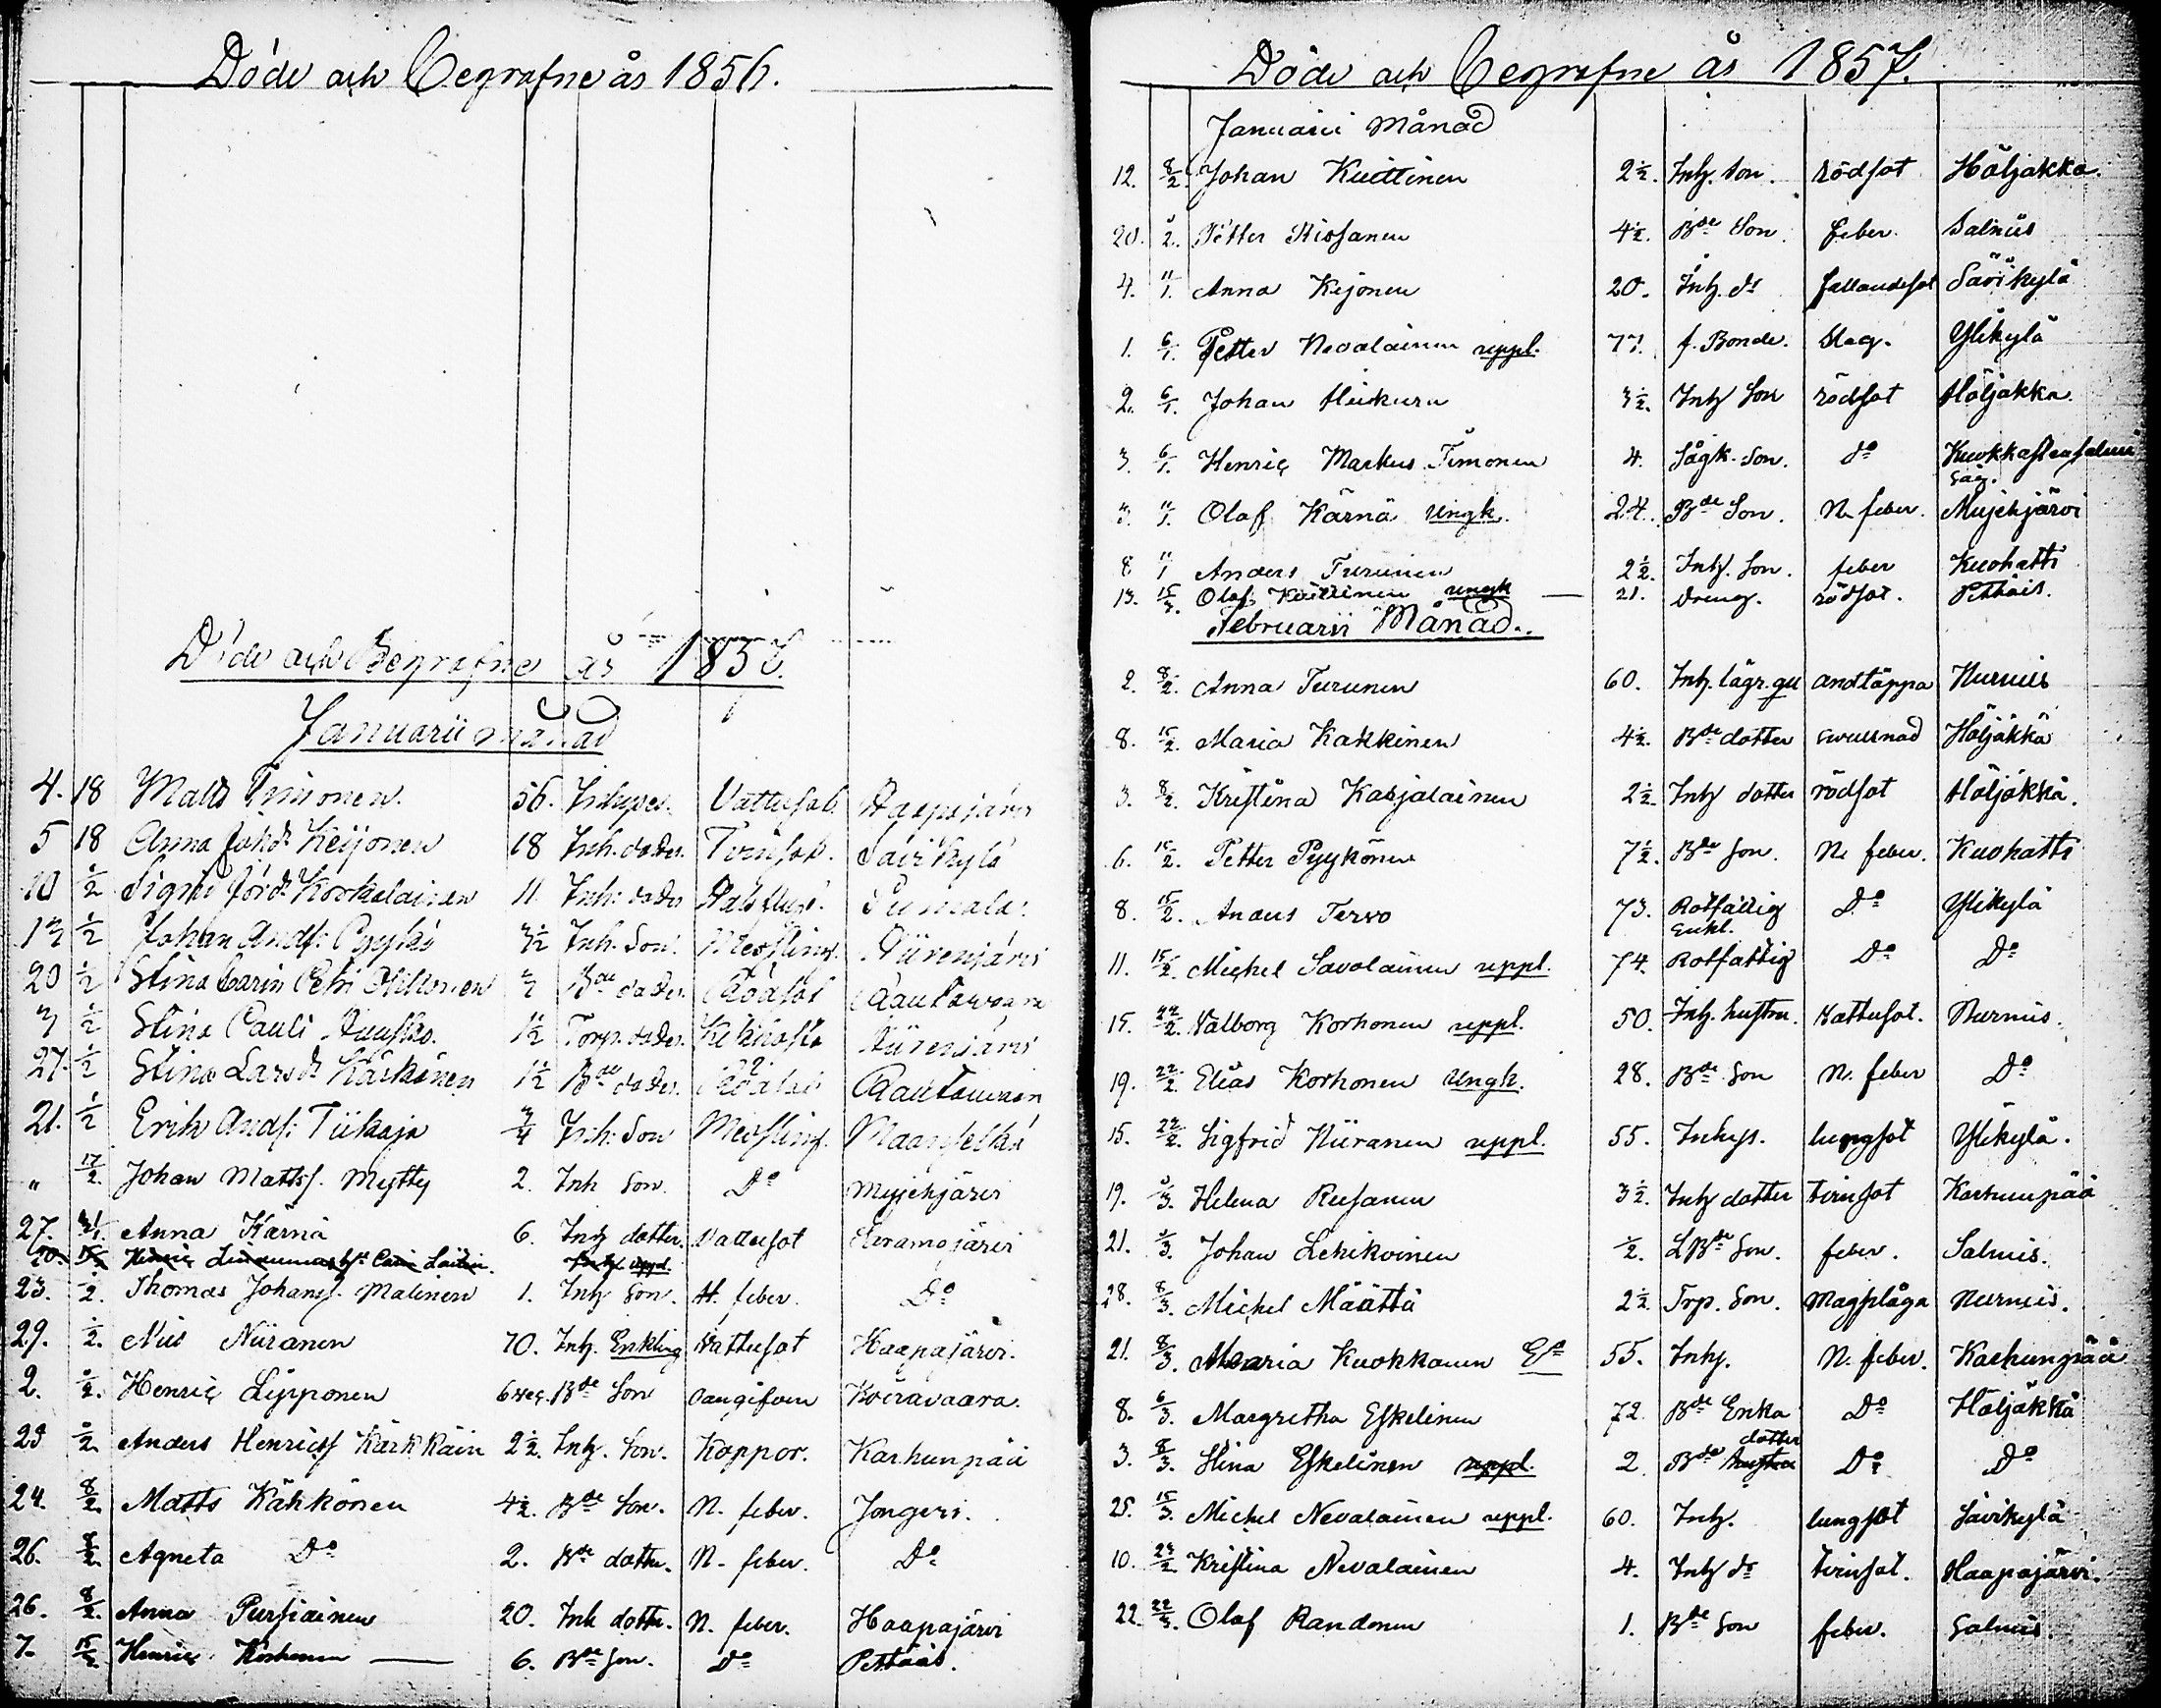 Döde och Begrafne år 1856.
Döde och Begrafne år 1857.
Januarii månad
4. 18 Matts Timonen. 56. Inhyses. Vattusot. Haapajärvi
5 18 Anna Johd: Keijonen 18 Inh. dotter. Tvinsot. Savikylä
10 1/2 Signi Körkoläinen 11. Inh: dotter Pumala.
1/2 Johan Andf: Pyykö 3½ Inh. Son. Messling. Niirenjärvi
20 1/2 Stina Carin Petri Hiltonen Bde dotter. Rödsot Rautavaara
1/2 Stina Pauli 1½ Torp. dotter. Kikhosta Niirenjärvi
27. 1/2 Stina Larsdr Kärkönen 1½ Bde dotter. Rödsot Rautavaara
21. 1/2 Erik Andf: Tiikaja 3/4 Inh. Son Messling. Maanselkä
" 17/2. Johan Mattsf. Mytty 2. Inh Son. Do Mujehjärvi
27. 31/1. Anna Kärnä 6. Inh dotter. Vattusot
20. Inh uppl.
23. 1/2. Thomas Johansf. Malinen 1. Inh Son. H. feber. Do
29. 1/2. Nils Niiranen 70. Inh. Enkling Vattusot Haapajärvi.
2. 8/2. Henric Lipponen 6 vec. Bde Son oangifven Koiravaara.
23 8/2 Anders Henricsf Kärkkäin 2½. Inh. Son. Koppor. Karhunpää
24. 8/2. Matts Käkkönen 4½. Bde Son. N. feber. Jongeri.
26. 8/2. Agneta Do 2. Bde dotter. N. feber. Do
26. 8/2. Anna Pursiainen 20. Inh dotter. N. feber. Haapajärvi
7. 15/2. Henric Korhonen — 6. Bde Son. Do Pettäis.
Döde och Begrafne år 1857.
Januarii Månad
12. 8/2. Johan Kuittinen 2½. Inh. Son. rödsot Höljäkkä.
20. 8/2. Petter Kiosanen 4½. Bde Son. feber. Salmis
4. 11/1. Anna Kejonen 20. Inh. dr fallandesot Savikylä
1. 6/1. Petter Nevalainen uppl. 77. f. Bonde. Slag. Ylikylä
2. 6/1. Johan Heikura 3½. Inh Son rödsot Höljäkkä.
3. 6/1. Henric Markus Timonen 4. Sågk. Son. do Kuokkastensalmi
Såg.
3. 11/1. Olof Kärnä Ungk. 24. Bde Son. N. feber. Mujehjärvi
8 11/1 Anders Turunen 2½. Inh. Son. feber Kuohatti
13. 15/3. Olof Kuittinen ungk — 21. dreng. rödsot. Pettäis.
Februarii Månad.
2. 8/2. Anna Turunen 60. Inh. lägr. qu andtäppa Nurmis
8. 15/2. Maria Kakkinen 4½. Bde dotter svullnad Höljäkkä
3. 8/2. Kristina Karjalainen 2½. Inh dotter rödsot Höljäkkä.
6. 15/2. Petter Pyykönen 7½. Bde Son. N. feber. Kuohatti
8. 15/2. Anders Tervo 73. Rotfattig Do Ylikylä
Enkl.
11. 15/2. Michel Savolainen uppl. 74. Rotfattig Do Do
15. 22/2. Valborg Korhonen uppl. 50. Inh. hustru. Vattusot. Nurmis.
19. 22/2. Elias Korhonen Ungk. 28. Bde Son N. feber Do
15. 22/2. Sigfrid Niiranen uppl. 55. Inhys. lungsot Ylikylä.
19. 1/3. Helena Reusanen 3½. Inh dotter tvinsot Karhunpää
21. 1/3. Johan Lehikoinen ½. LBde Son. feber. Salmis.
28. 8/3. Michel Määttä 2½. Trp. Son. Magplåga Nurmis.
21. 8/3. Maria Kuokkanen Ea 55. Inhs. N. feber. Karhunpää
8. 6/3. Margretha Eskelinen 72. Bde Enka Do Höljäkkä
dotter
3. 8/3. Stina Eskelinen uppl. 2. Bde hustru Do Do
25. 15/3. Michel Nevalainen uppl. 60. Inh. lungsot Savikylä
10. 22/2. Kristina Nevalainen 4. Inh dr tvinsot. Haapajärvi.
22. 22/3. Olof Randonen 1. Bde Son feber. Salmis.